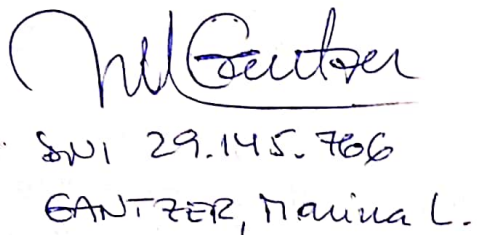 MGantzer
DNI 29.145.766
GANTZER, Marina L.